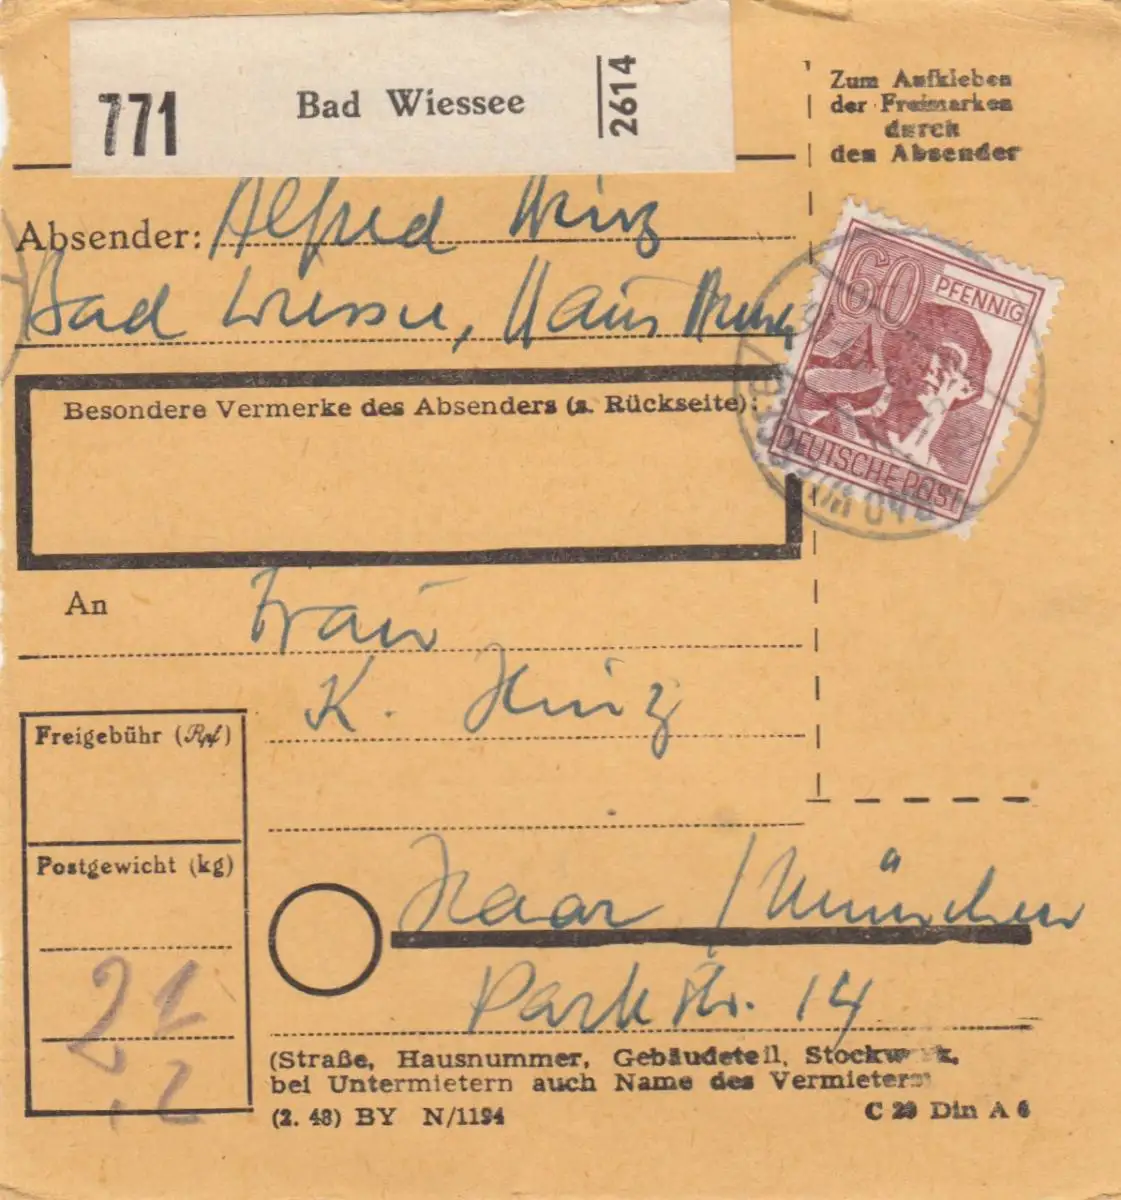 771 Bad Wiessee 2614
Zum Aufkleben
der Freimarken
durch
den Absender
Absender: Alfred Hinz
Bad Wiessee, Haus
60 PFENNIG
DEUTSCHE POST
Besondere Vermerke des Absenders (s. Rückseite):
An Frau
K. Hinz
Freigebühr (Rpf)
Postgewicht (kg)
Haar / München
Parkstr. 14
(Straße, Hausnummer, Gebäudeteil, Stockwerk,
bei Untermietern auch Name des Vermieters)
(2. 48) BY N/1194 C 29 Din A 6